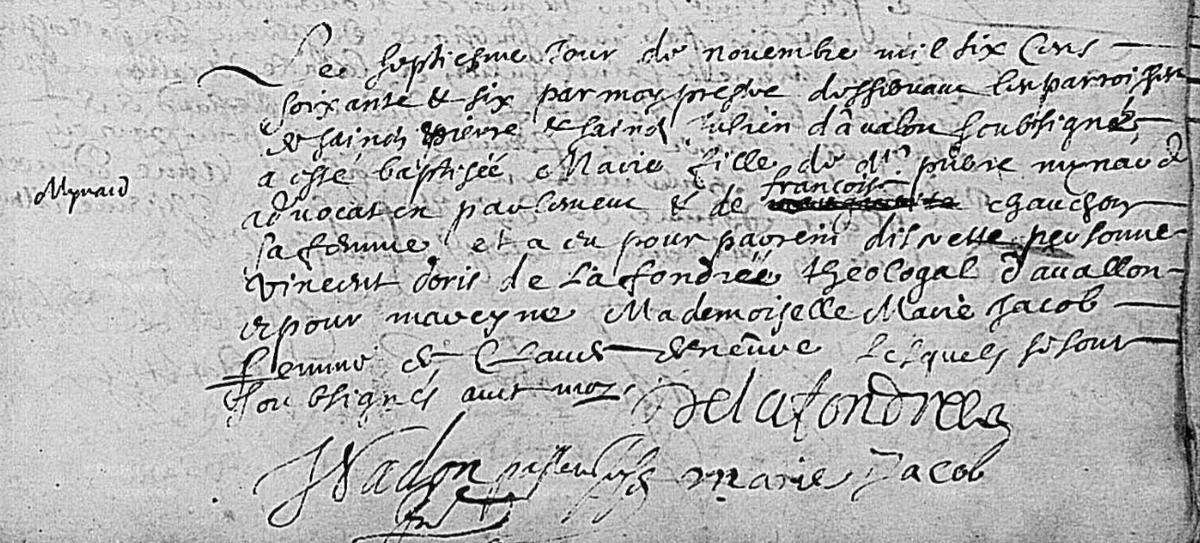 Le septiesme Jour de novembre mil six Cens
soixante & six par moy prestre desservant les parroisses
de sainct pierre & sainct Julien d'avalon soubsigné
a esté baptisée Marie fille de Mr. minard
Mynard
advocat en parlement & de françoise chauchon
sa femme et a eu pour parrein discrette personne
vincent doris de Lafondrée théologal d'avallon
& pour mareyne Mademoiselle Marie Jacob
femme de Claude deneuve lesquels se sont
soubsignés avec moy.
Delafondree
marie Jacob